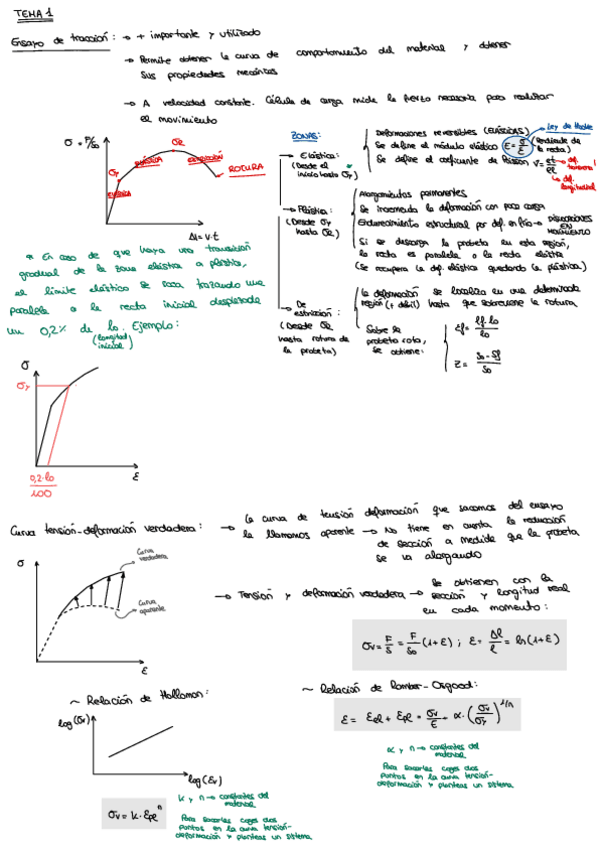 TEMA 1
Ensayo de tracción: → + importante y utilizado
→ Permite obtener la curva de comportamiento del material y obtener
sus propiedades mecánicas
→ A velocidad constante. Célula de carga mide la fuerza necesaria para realizar
el movimiento
σ = F/S₀
σR
σy
ELÁSTICA
PLÁSTICA
ESTRICCIÓN
ROTURA
Δl = v·t
ZONAS:
→ Elástica:
(Desde el
inicio hasta σy)
Deformaciones reversibles (ELÁSTICAS)
Se define el módulo elástico E = σ/ε (Pendiente de
la recta)
Ley de Hooke
Se define el coeficiente de Poisson ν = εt/εl
def. transversal
def. longitudinal
→ Plástica:
(Desde σy
hasta σR)
Alargamientos permanentes
Se incrementa la deformación con poca carga
Endurecimiento estructural por def. en frío → DISLOCACIONES
EN
MOVIMIENTO
Si se descarga la probeta en esta región,
la recta es paralela a la recta elástica
(Se recupera la def. elástica quedando la plástica)
→ De
estricción:
(Desde σR
hasta rotura de
la probeta)
La deformación se localiza en una determinada
región (+ débil) hasta que sobreviene la rotura.
Sobre la
probeta rota,
se obtiene:
εf = (lf - l₀)/l₀
Z = (S₀ - Sf)/S₀
* En caso de que haya una transición
gradual de la zona elástica a plástica,
el límite elástico se saca trazando una
paralela a la recta inicial desplazada
un 0,2% de l₀. Ejemplo:
(longitud
inicial)
σ
σy
0,2·l₀
100
ε
Curva tensión-deformación verdadera: → La curva de tensión deformación que sacamos del ensayo
la llamamos aparente → No tiene en cuenta la reducción
de sección a medida que la probeta
se va alargando
σ
Curva
verdadera
Curva
aparente
ε
→ Tensión y deformación verdadera → Se obtienen con la
sección y longitud real
en cada momento:
σv = F/S = F/S₀ (1+ε) ; ε = Δl/l = ln(1+ε)
~ Relación de Hollomon:
log(σv)
log(εv)
σv = k · εpl^n
k y n → constantes del
material
Para sacarlas coges dos
puntos en la curva tensión-
deformación y planteas un sistema
~ Relación de Ramber-Osgood:
ε = εel + εpl = σv/E + α·(σv/σy)^(1/n)
α y n → constantes del
material
Para sacarlas coges dos
puntos en la curva tensión-
deformación y planteas un sistema.